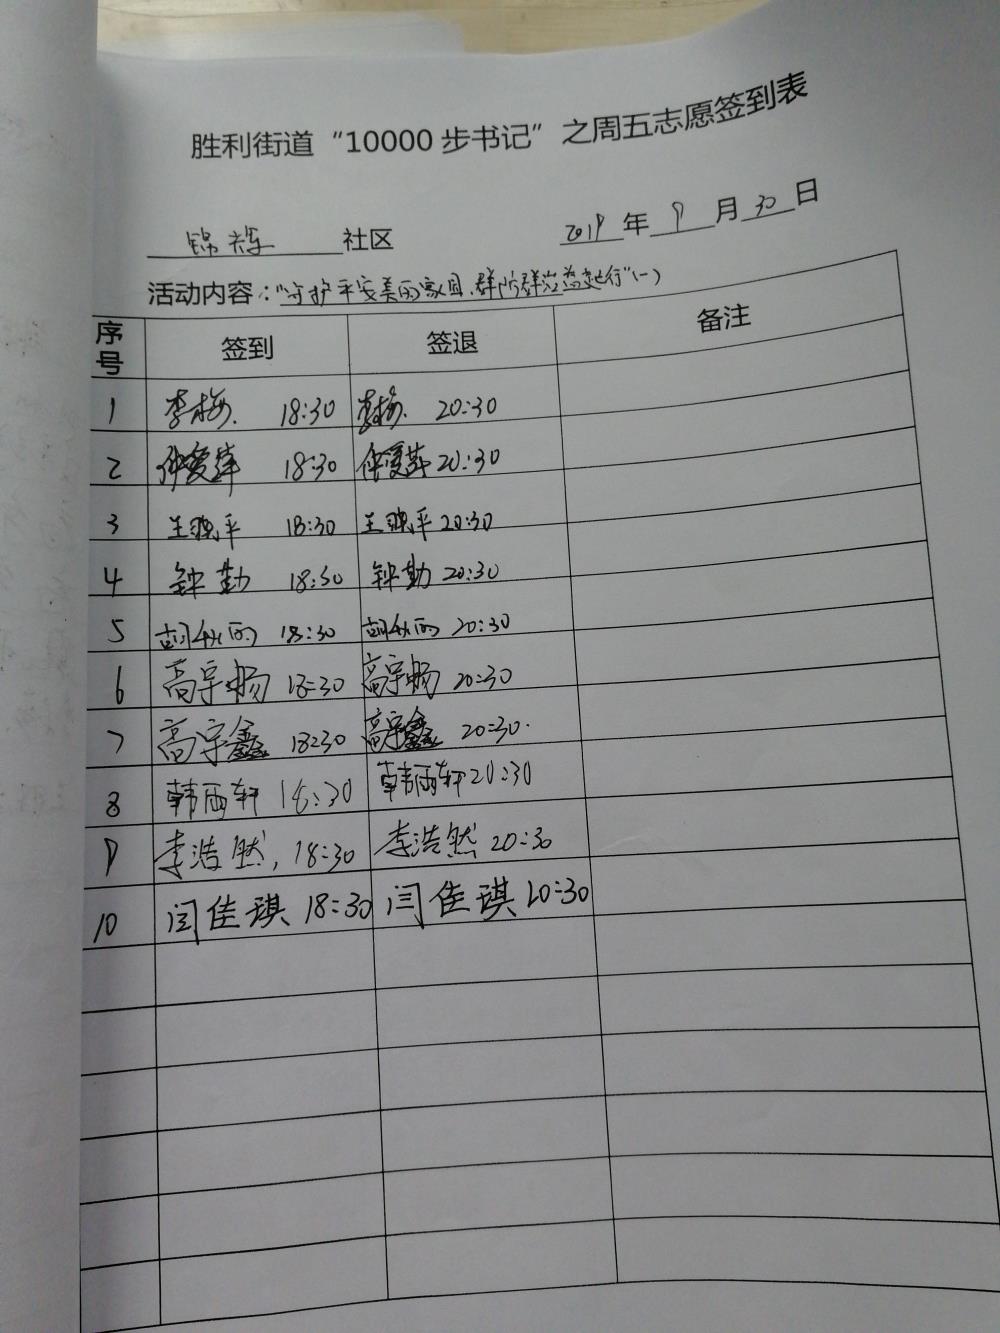 胜利街道“10000步书记”之周五志愿签到表
锦辉 社区 2019年9月30日
活动内容：“守护平安美丽家园、群防群治益起行”(一)
序号 签到 签退 备注
1 李梅. 18:30 李梅. 20:30
2 仲爱萍 18:30 仲爱萍 20:30
3 王晓平 18:30 王晓平 20:30
4 钟勤 18:30 钟勤 20:30
5 胡秋丽 18:30 胡秋丽 20:30
6 高宇畅 18:30 高宇畅 20:30
7 高宇鑫 18:30 高宇鑫 20:30.
8 韩雨轩 18:30 韩雨轩 20:30
9 李浩然, 18:30 李浩然 20:30
10 闫佳琪 18:30 闫佳琪 20:30